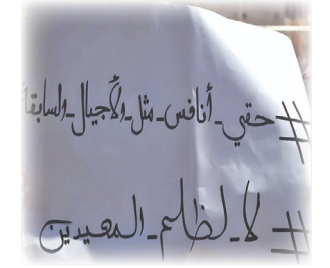 #حقي_أنافس_مثل_الأجيال_السابقة
#لا_لظلم_المعيدين